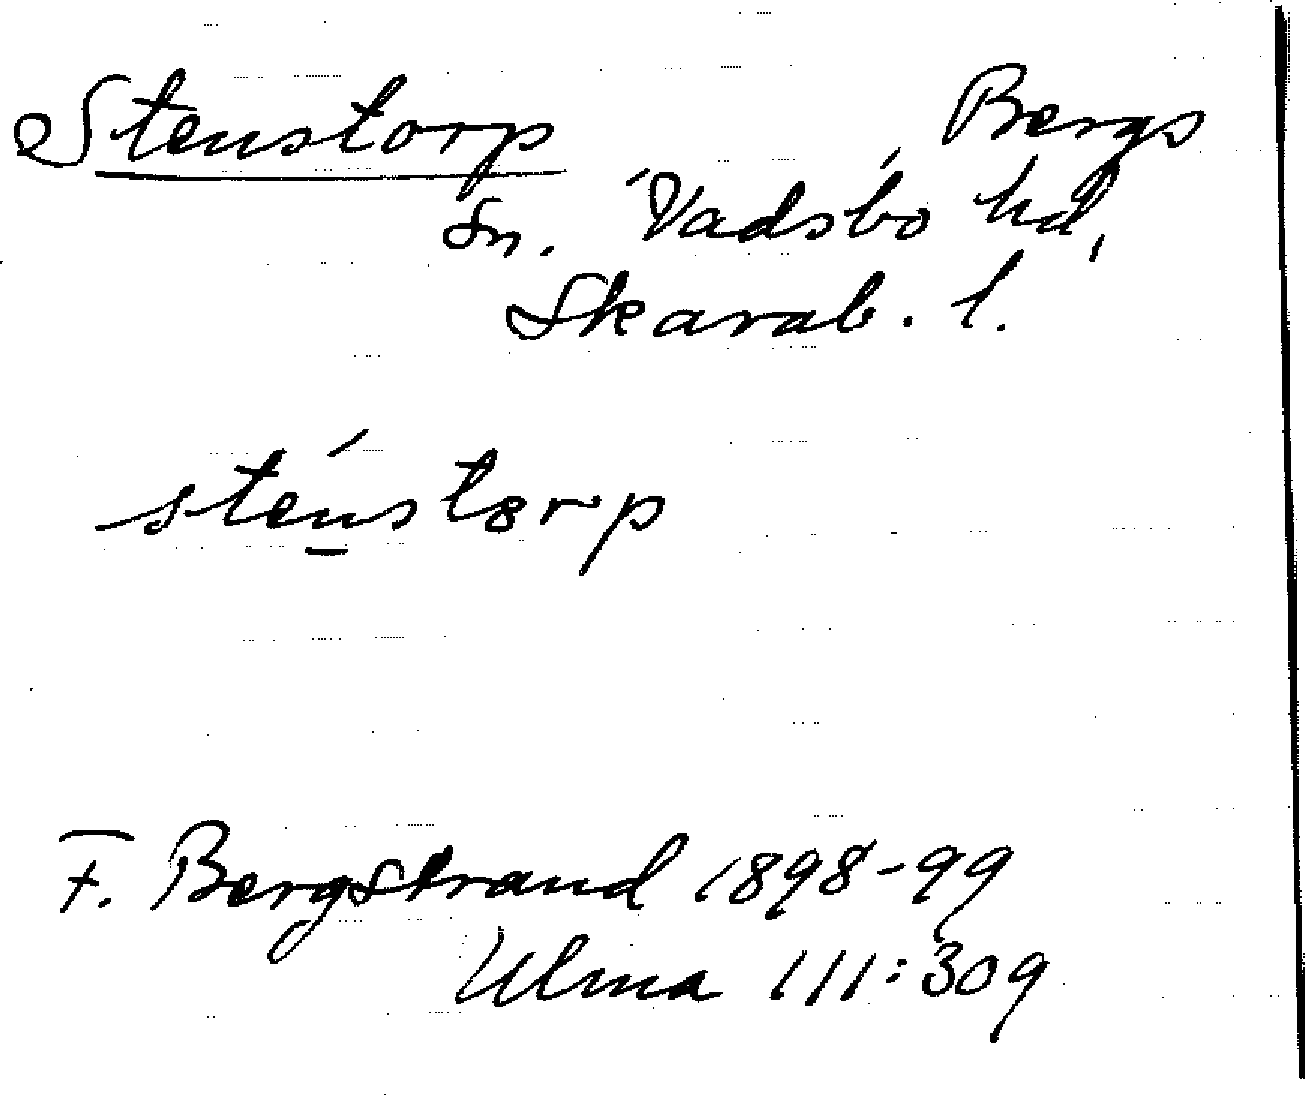 Stenstorp Bergs
Sn. Vadsbo hd,
Skarab. l.
sténstorp
F. Bergstrand 1898-99
Ulma 111:309